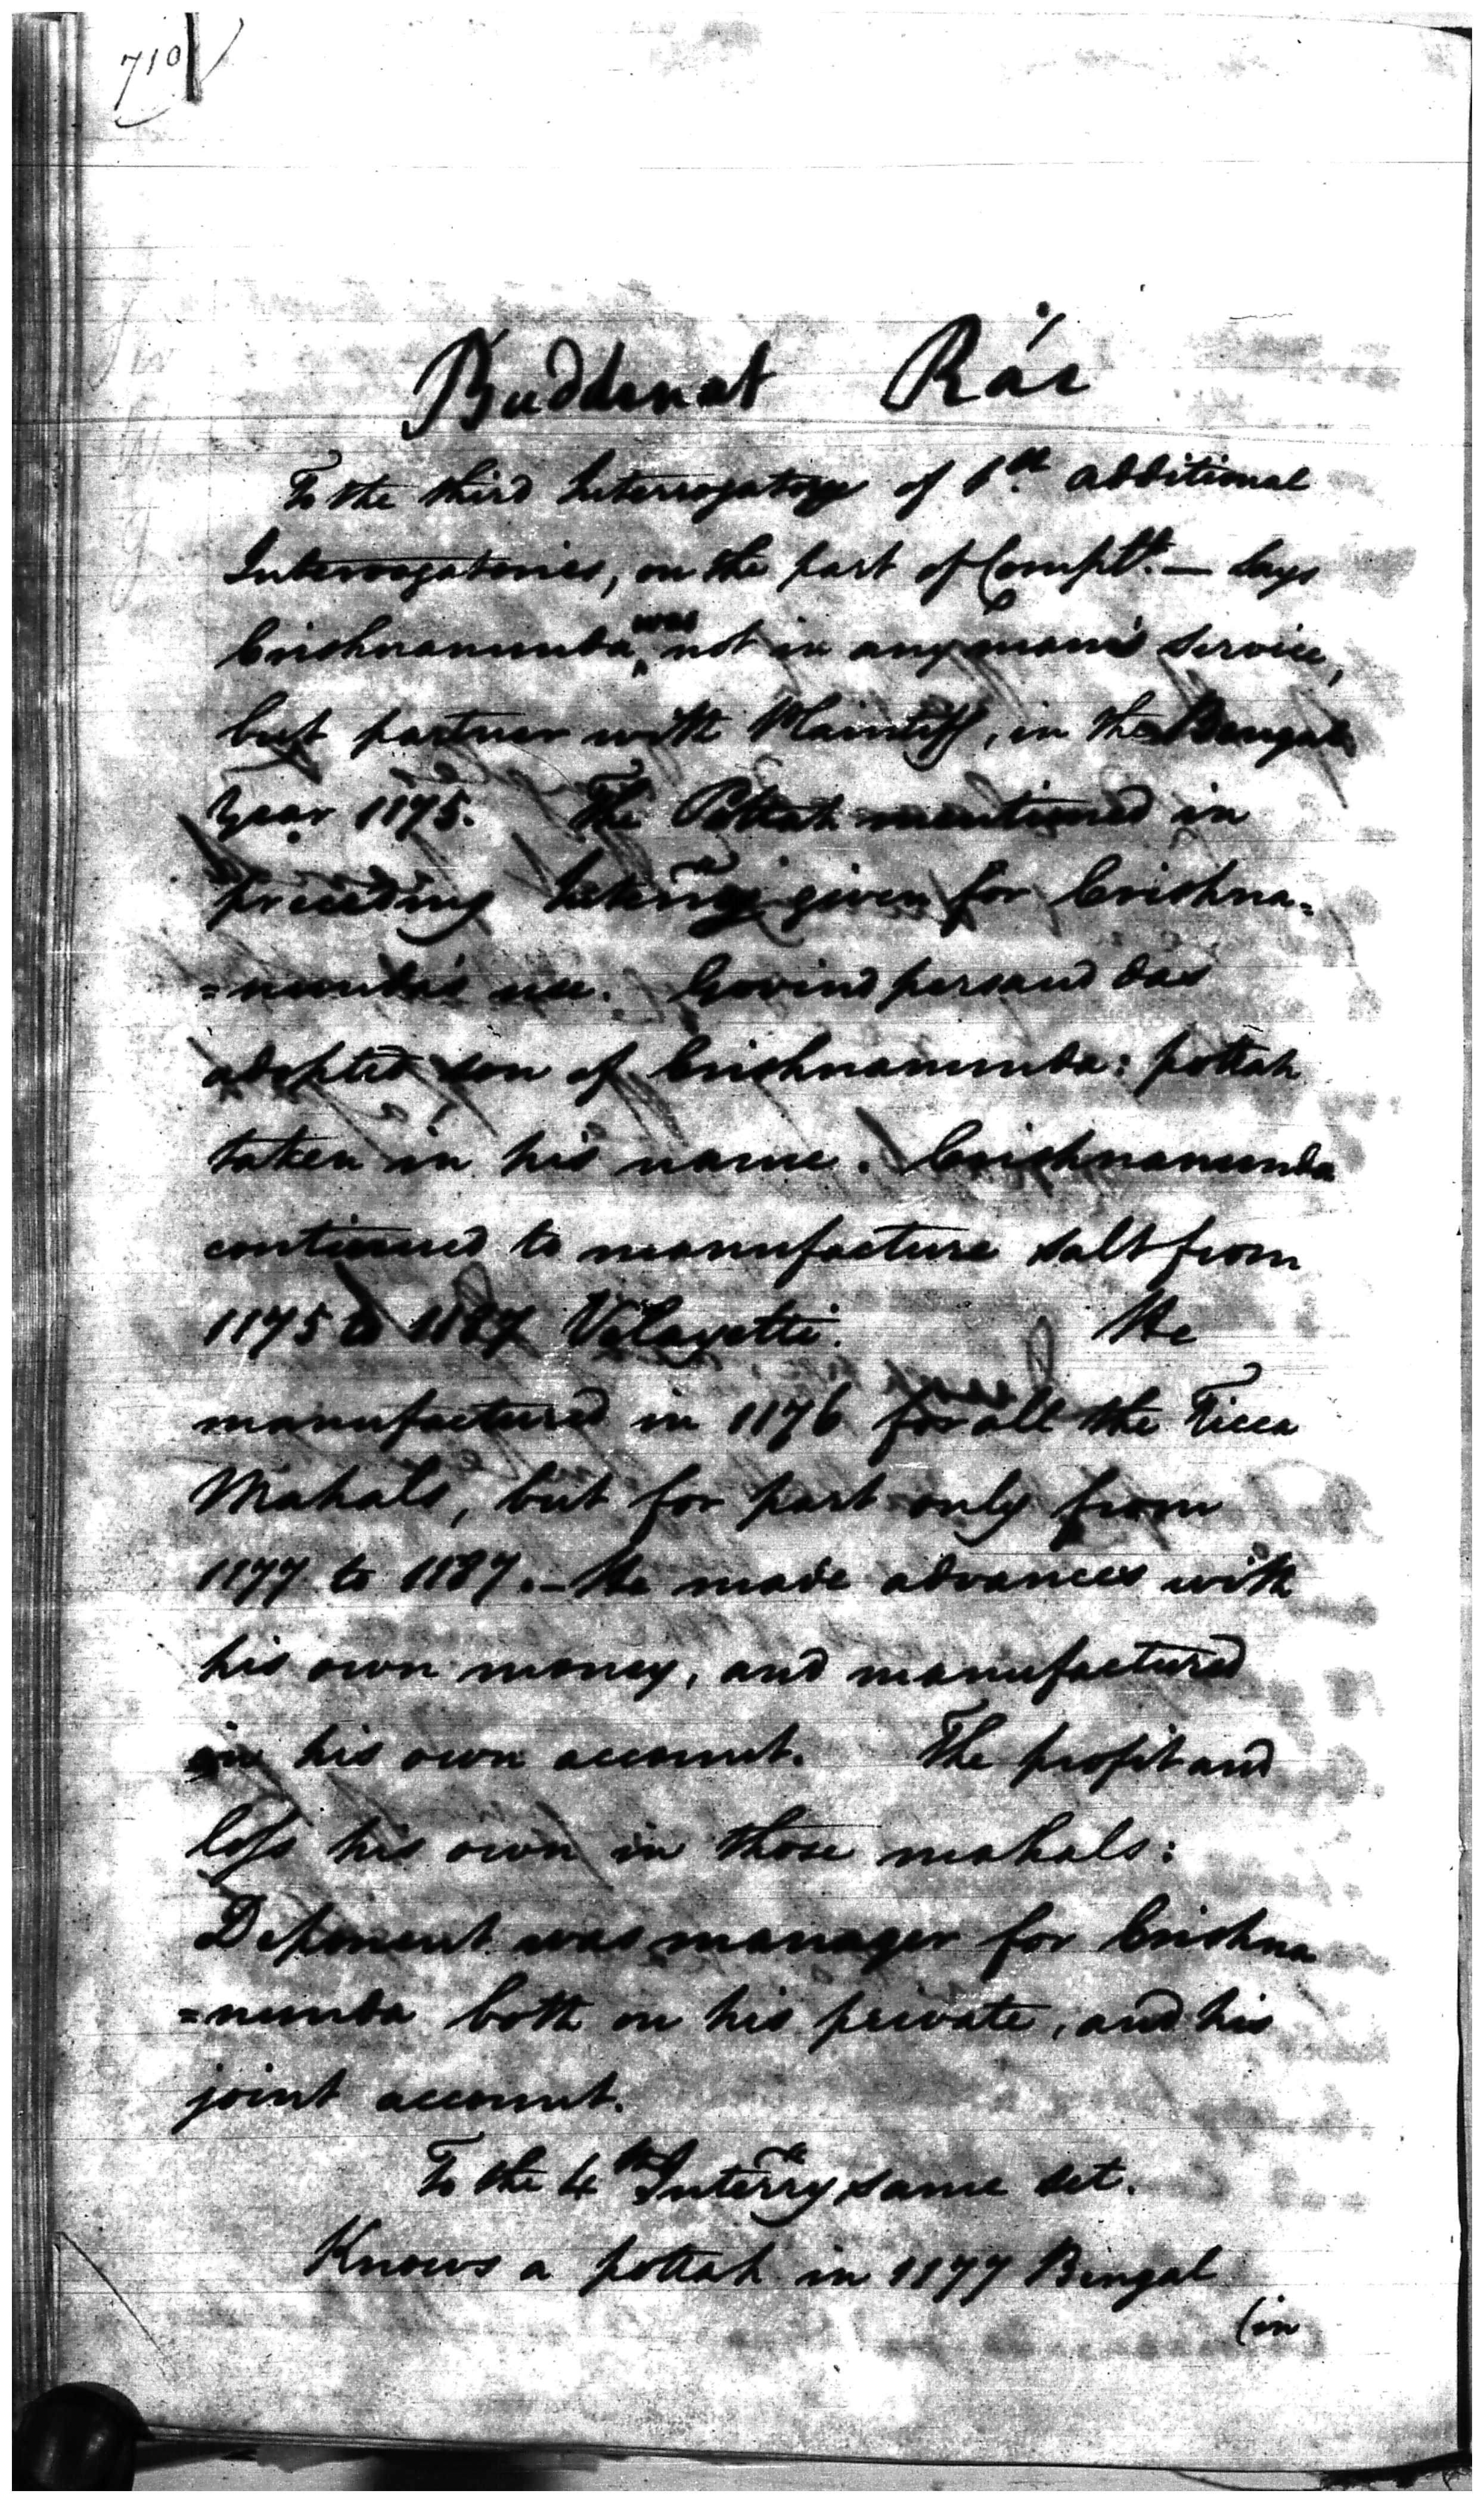 710
Buddenat Ráe
To the third Interrogatory of 1st additional
Interrogatories, on the part of Complt. — Says
Crishnanunda was not in any man's service,
but partner with Plaintiff, in the Bengal
year 1175. The Pottah mentioned in
preceding Interry given for Crishna=
=nunda's use. Govind persaud das
adopted son of Crishnanunda: pottah
taken in his name. Crishnanunda
continued to manufacture salt from
1175 to 1187 Velayetti. He
manufactured in 1176 for all the Ticca
Mahals, but for part only from
1177 to 1187. — He made advances with
his own money, and manufactured
on his own account. The profit and
loss his own in those mahals:
Deponent was manager for Crishna
=nunda both on his private, and his
joint account.
To the 4th Interry same set.
Knows a pottah in 1177 Bengal
(in